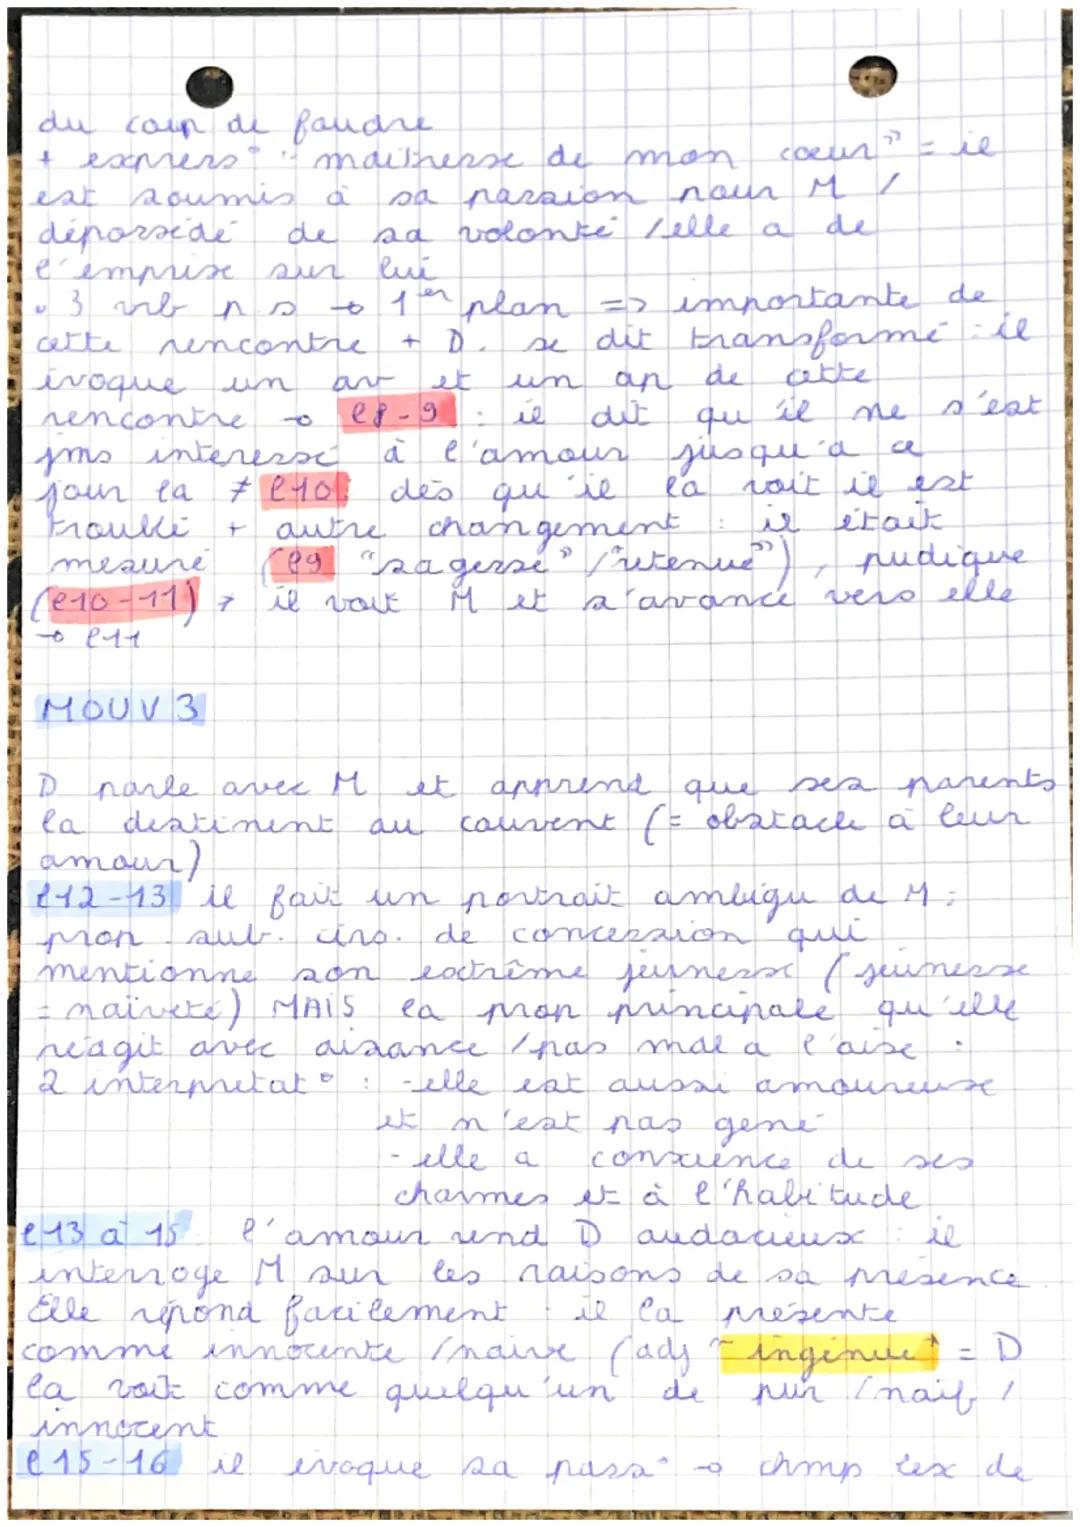 du coup de foudre
+ express° : "maîtresse de mon coeur" = il
est soumis à sa passion pour M /
dépossédé de sa volonté / elle a de
l'emprise sur lui
. 3 vrb p s → 1er plan => importante de
cette rencontre + D. se dit transformé : il
évoque un av et un ap de cette
rencontre → l8-9 : il dit qu'il ne s'est
jms interessé à l'amour jusqu'à ce
jour la ≠ l10 : dès qu'il la voit il est
troublé + autre changement : il était
mesuré (l9 "sagesse" / "retenue"), pudique
(l10-11) ≠ il voit M et s'avance vers elle
→ l11
MOUV 3
D parle avec M et apprend que ses parents
la destinent au couvent (= obstacle à leur
amour)
l12-13 il fait un portrait ambigu de M :
prop sub. circ. de concession qui
mentionne son extrême jeunesse (jeunesse
= naïveté) MAIS la prop principale qu'elle
réagit avec aisance / pas mal à l'aise :
2 interprétat° : - elle est aussi amoureuse
et n'est pas gené
- elle a conscience de ses
charmes et à l'habitude
l13 à 15 : l'amour rend D audacieux : il
interroge M sur les raisons de sa présence.
Elle répond facilement : il la présente
comme innocente / naïve (adj "ingénue" = D
la voit comme quelqu'un de pur / naïf /
innocent
l15-16 il évoque sa pass° → chmp lex de